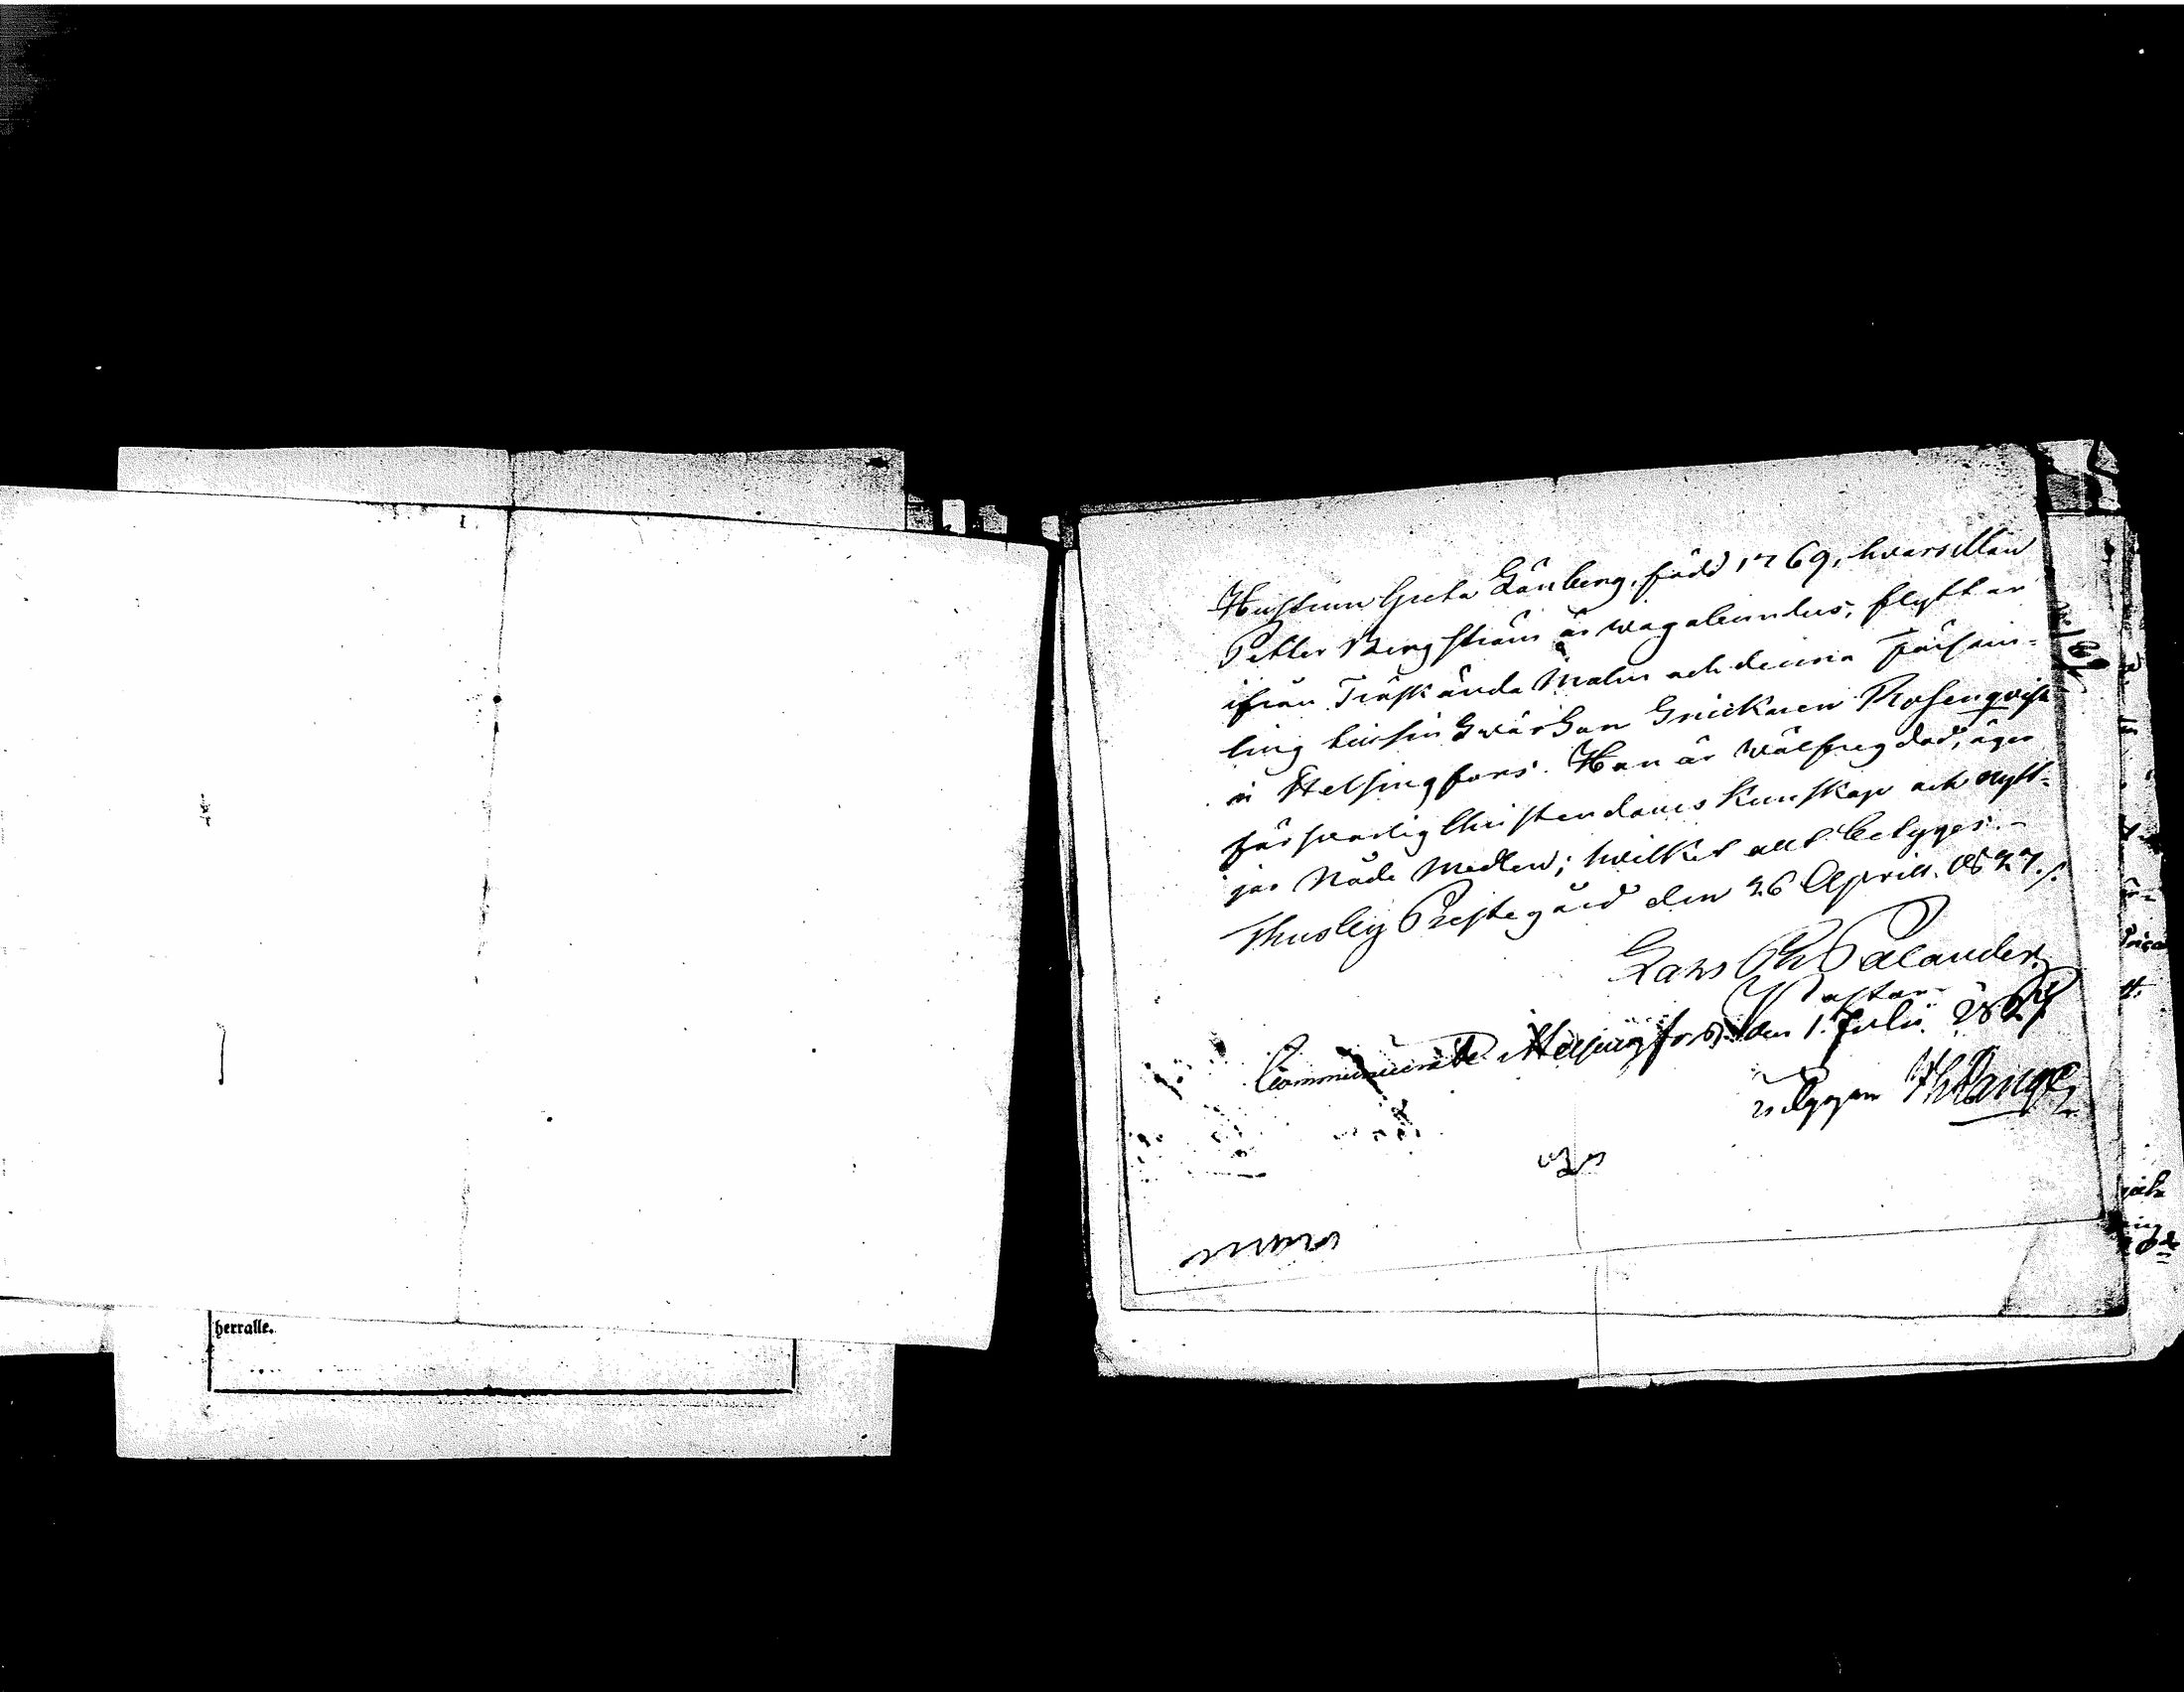 herralle.
Hustrun Greta Lönberg, född 1769, hvars Man
Petter Bergström är vagabundus, flyttar
ifrån Träskända Malm och denna Försam-
ling till sin Swärson Snickaren Rosenqvist
i Helsingfors. Hon är wälfregdad, äger
försvarlig Christendoms Kunskap och nytt-
jar Nåde Medlen; hvilket allt betyges.
Thusby Prestegård den 26 Aprill 1827.
Lars Palander
Pastor
Communicerat i Helsingfors den 1 Julii 1827